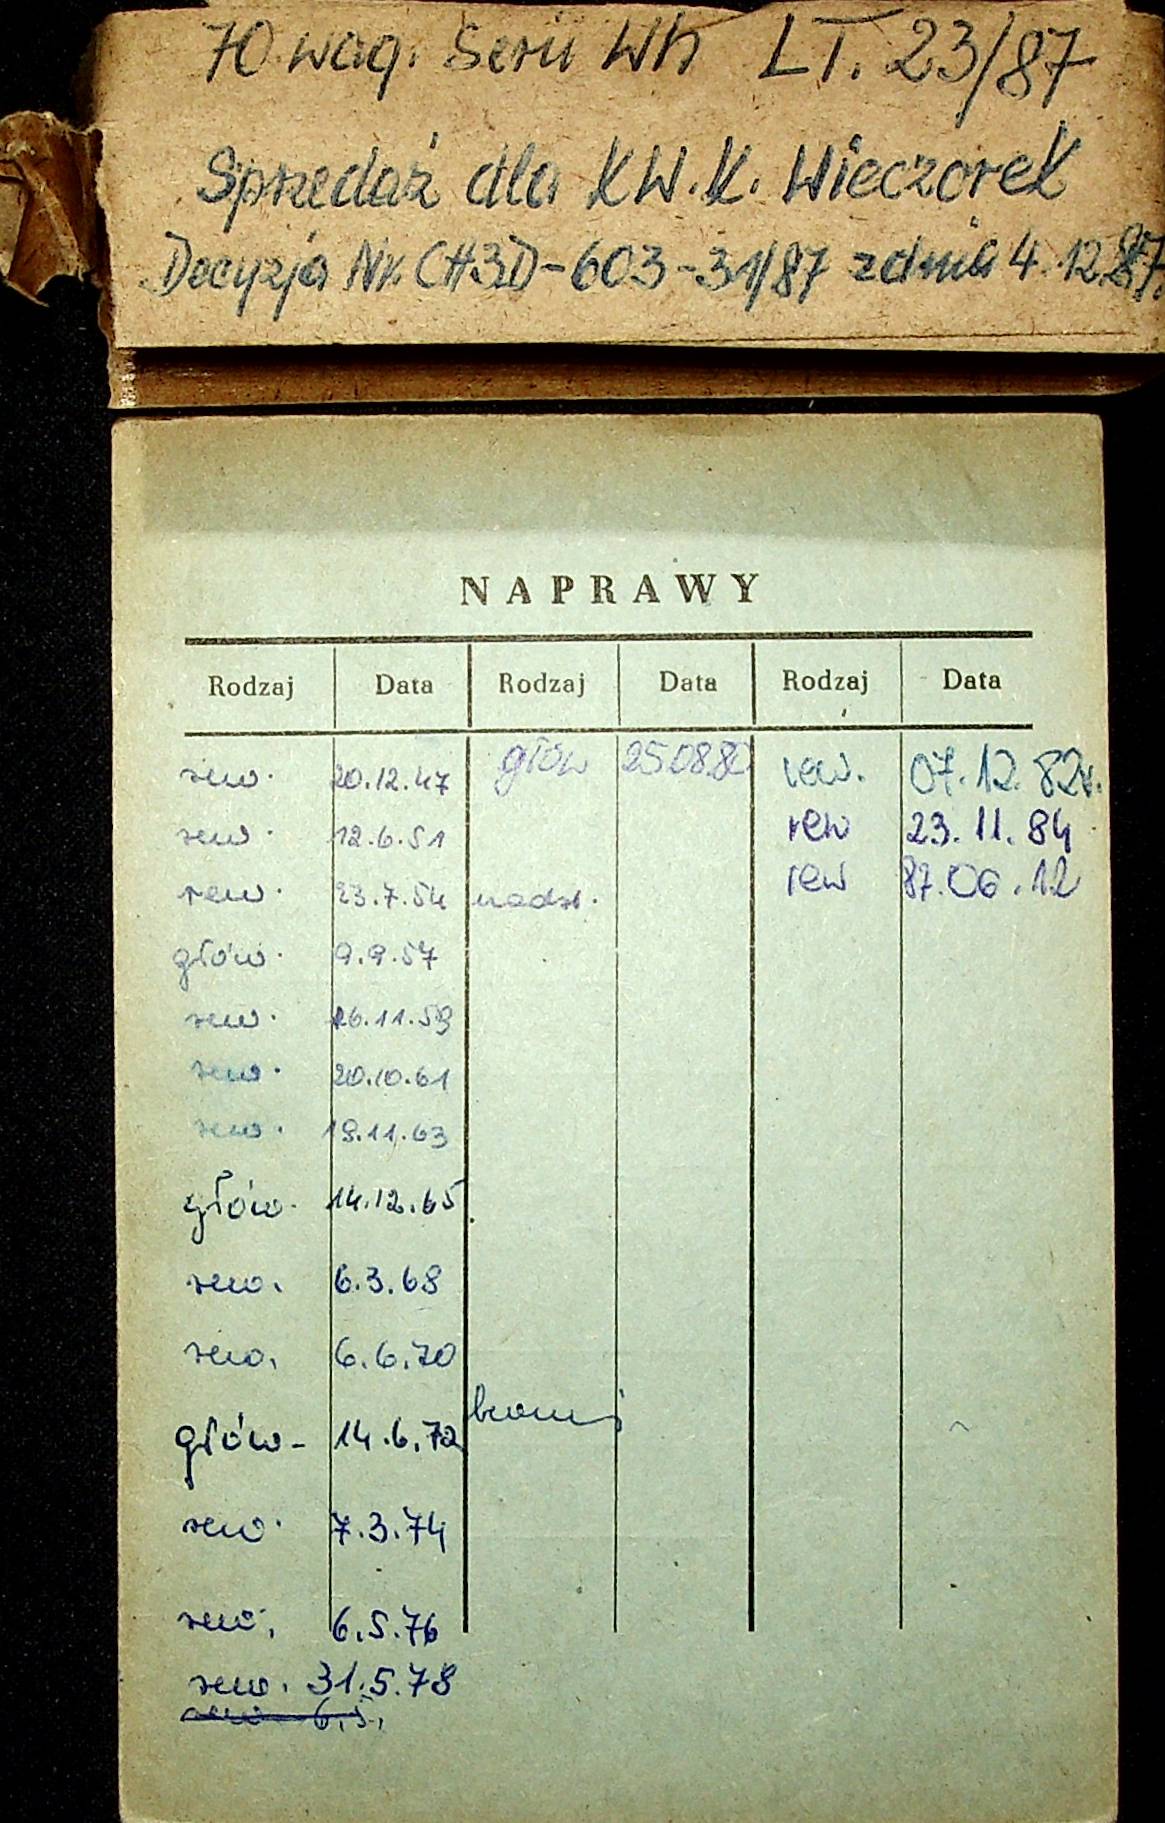 70 wag. Serii Wh LT. 23/87
Sprzedaż dla KW.K. Wieczorek
Decyzja Nr. CH3D-603-31/87 z dnia 4.12.87.
NAPRAWY
Rodzaj Data Rodzaj Data Rodzaj Data
rew. 20.12.47 głów 25.08.80 rew. 07.12.82r.
rew. 12.6.51 rew 23.11.84
rew. 23.7.54 nadzl. rew 87.06.12
głów. 9.9.57
rew. 26.11.59
rew. 20.10.61
rew. 19.11.63
głów. 14.12.65
rew. 6.3.68
rew. 6.6.70
głów- 14.6.72
rew. 7.3.74
rew. 6.5.76
rew. 31.5.78
rew 6.5.